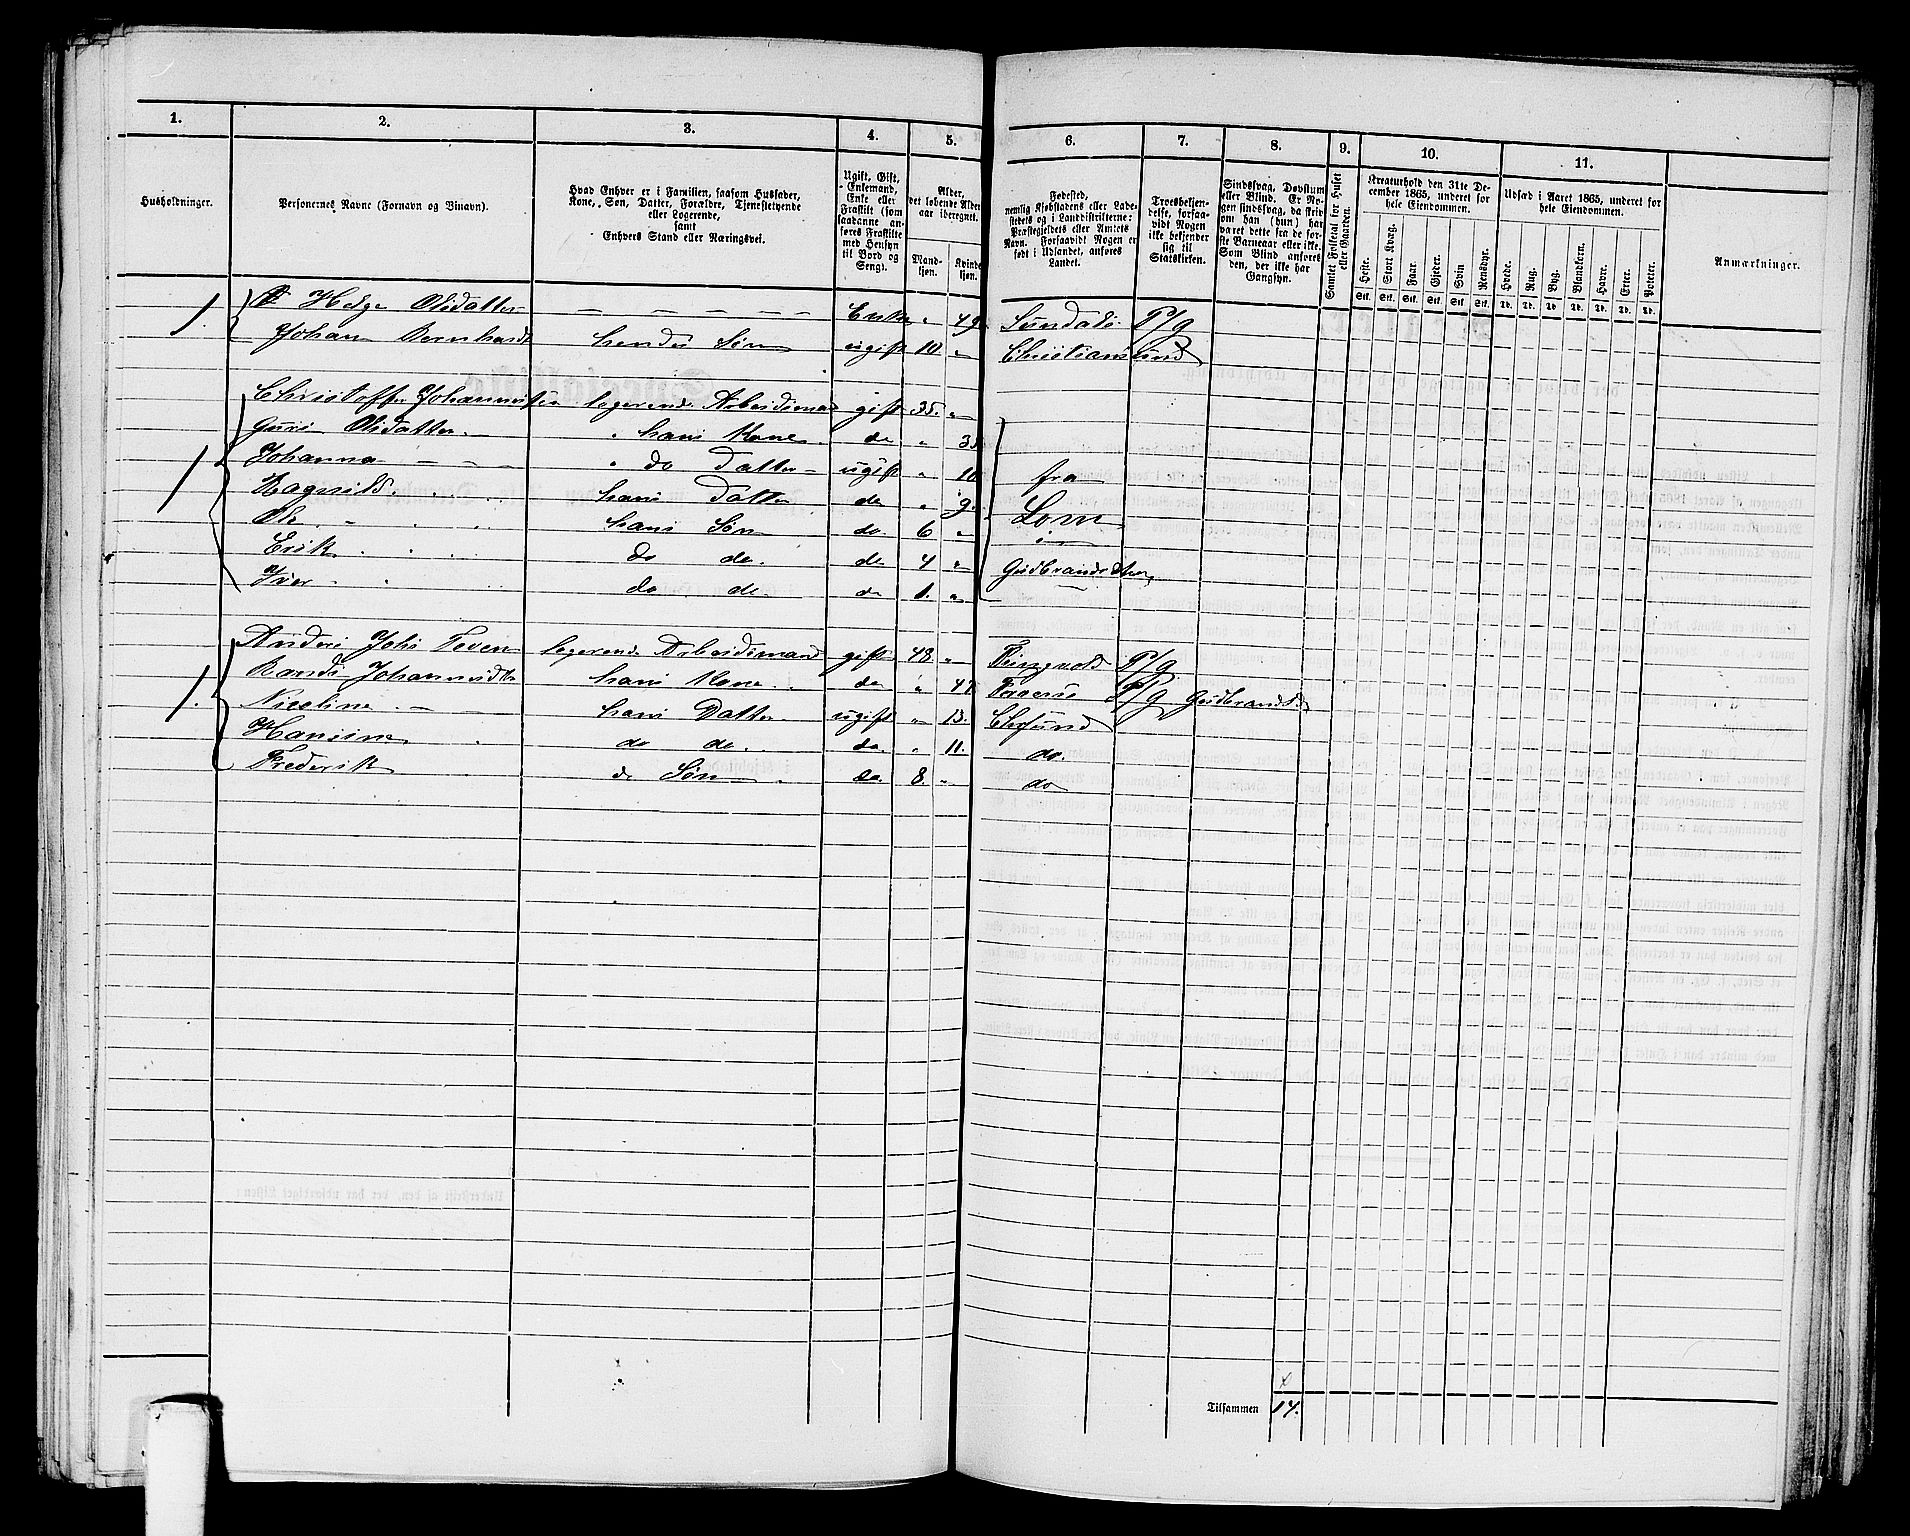 1. 2. 3. 4. 5. 6. 7. 8. 9. 10. 11.
Husholdninger.
Personernes Navne (Fornavn og Binavn).
Hvad Enhver er i Familien, saasom Husfader,
Kone, Søn, Datter, Forældre, Tjenestetyende
eller Logerende,
samt
Enhvers Stand eller Næringsvei.
Ugift, Gift,
Enkemand,
Enke eller
Fraskilt (som
saadanne an-
føres Fraskilte
med Hensyn
til Bord og
Seng).
Alder,
det løbende Alders-
aar iberegnet.
Mand-
kjøn.
Kvinde-
kjøn.
Fødested,
nemlig Kjøbstadens eller Lade-
stedets og i Landdistrikterne:
Præstegjeldets eller Amtets
Navn. Forsaavidt Nogen er
født i Udlandet, anføres
Landet.
Troesbekjen-
delse, forsaa-
vidt Nogen
ikke bekjender
sig til
Statskirken.
Sindssvag, Døvstum
eller Blind. Er No-
gen sindssvag, da skriv
om han (hun) har
været dette fra de før-
ste Barneaar eller ikke.
Som Blind anføres
den, der ikke har
Gangsyn.
Samlet Folketal for Huset
eller Gaarden.
Kreaturhold den 31te De-
cember 1865, underet for
hele Eiendommen.
Heste. Stort Kvæg. Faar. Gjeder. Svin Rensdyr.
Stk. Stk. Stk. Stk. Stk. Stk.
Udsæd i Aaret 1865, underet for
hele Eiendommen.
Hvede. Rug. Byg. Blandkorn. Havre. Erter. Poteter.
Td. Td. Td. Td. Td. Td. Td.
Anmærkninger.
1. Helge Olsdatter — — — — — Enke " 49. Sundals P/g
Johan Bernhardt hendes Søn ugift 10 " Christiansund
1 Christoffer Johannesen logerende Arbeidsmand gift 35. "
Guri Olsdatter. " hans Kone. do " 35
Johanna — — — " do Datter — ugift " 10 fra
Ragnild. . . . hans Datter do " 9.
Ole. " . . hans Søn do. 6 " Lom
Erik . . . do do. do 4 " i
Iver . . . do do. do 1. " Gudbrandsdalen
1. Anders Johs Teven logerende Arbeidsmand gift 48 " Tingvold P/g
Randi Johannesdtr hans Kone. . do "
Nicoline . — — hans Datter. ugift " 13. Chrsund
Hansine . do do. . do. " 11. do.
Frederik do Søn . do. 8. " do
Tilsammen 14.